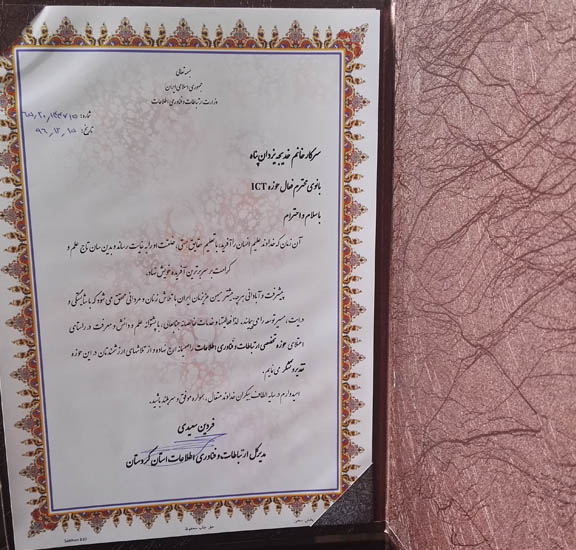 بسمه تعالی
جمهوری اسلامی ایران
وزارت ارتباطات و فناوری اطلاعات
شماره:
تاریخ: ۹۶,۱۲,۱۵
سرکار خانم خدیجه یزدان پناه
بانوی محترم فعال حوزه ICT
با سلام و احترام
آن زمان که خداوند علیم انسان را آفرید، با تعلیم حقایق هستی خلقت او را به غایت رساند و بدین سان تاج علم و
کرامت بر سر برترین آفریده خویش نهاد.
پیشرفت و آبادانی هر چه بیشتر میهن عزیزمان ایران با تلاش زنان و مردانی محقق می شود که با شایستگی و
درایت، مسیر توسعه را می پیمایند. لذا فعالیتها و خدمات خالصانه جنابعالی، با پشتوانه علم و دانش و معرفت در راستای
اعتلای حوزه تخصصی ارتباطات و فناوری اطلاعات را همیشه ارج نهاده و از تلاشهای ارزشمندتان در این حوزه
تقدیر و تشکر می نمایم.
امیدوارم در سایه الطاف بیکران خداوند متعال، همواره موفق و سربلند باشید.
فردین سعیدی
مدیر کل ارتباطات و فناوری اطلاعات استان کردستان
حق چاپ محفوظ